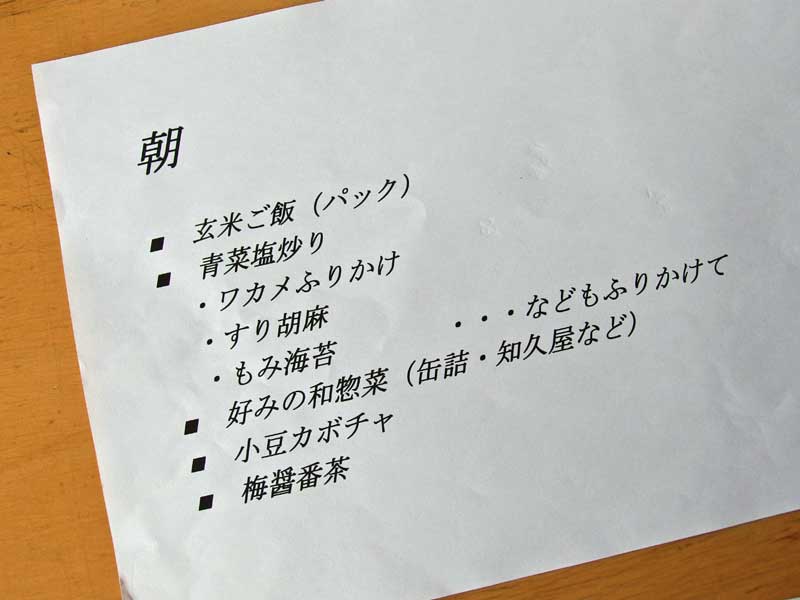 朝
■ 玄米ご飯（パック）
■ 青菜塩炒り
・ワカメふりかけ
・すり胡麻 ・・・などもふりかけて
・もみ海苔
■ 好みの和惣菜（缶詰・知久屋など）
■ 小豆カボチャ
■ 梅醤番茶